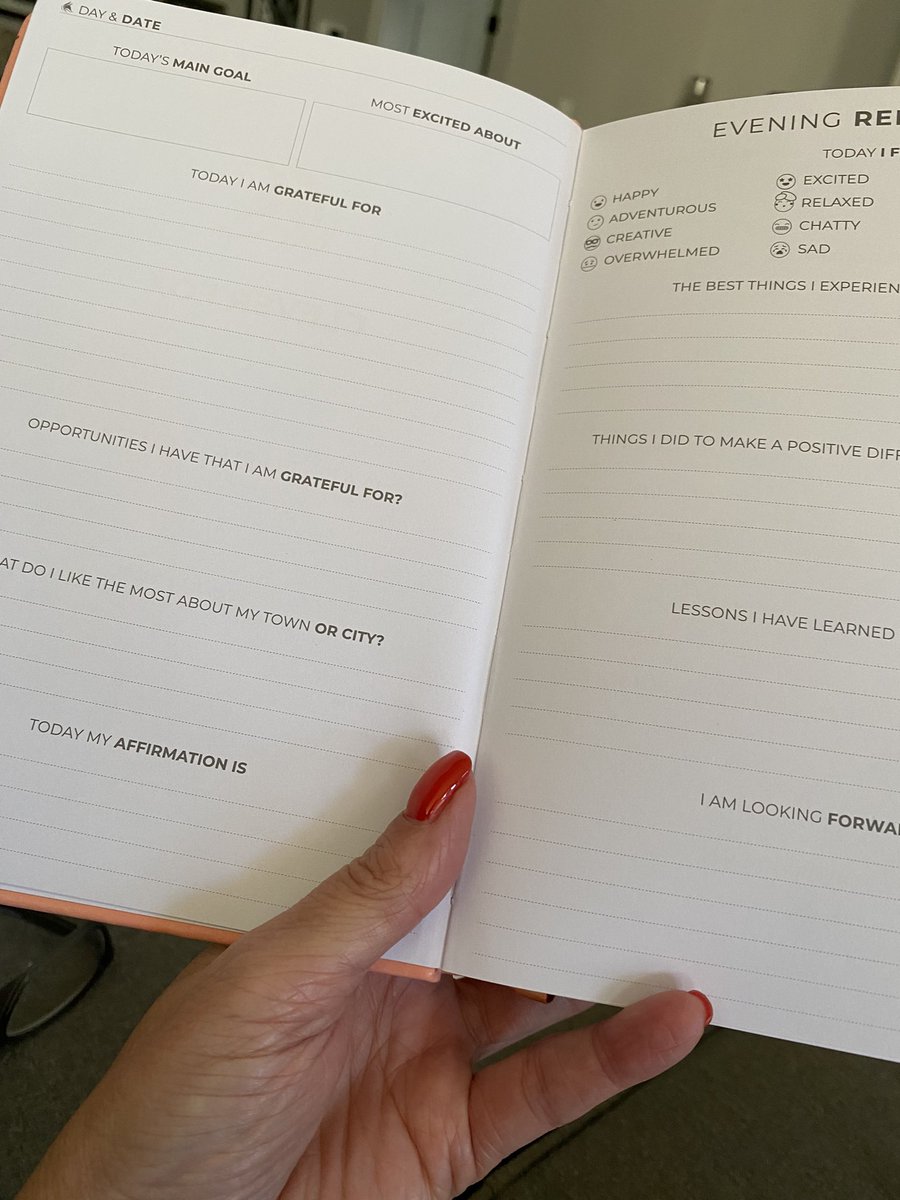 DAY & DATE
TODAY'S MAIN GOAL
MOST EXCITED ABOUT
TODAY I AM GRATEFUL FOR
OPPORTUNITIES I HAVE THAT I AM GRATEFUL FOR?
DO I LIKE THE MOST ABOUT MY TOWN OR CITY?
TODAY MY AFFIRMATION IS
EVENING
TODAY I
HAPPY
ADVENTUROUS
CREATIVE
OVERWHELMED
EXCITED
RELAXED
CHATTY
SAD
THE BEST THINGS I
THINGS I DID TO MAKE A POSITIVE
LESSONS I HAVE LEARNED
I AM LOOKING